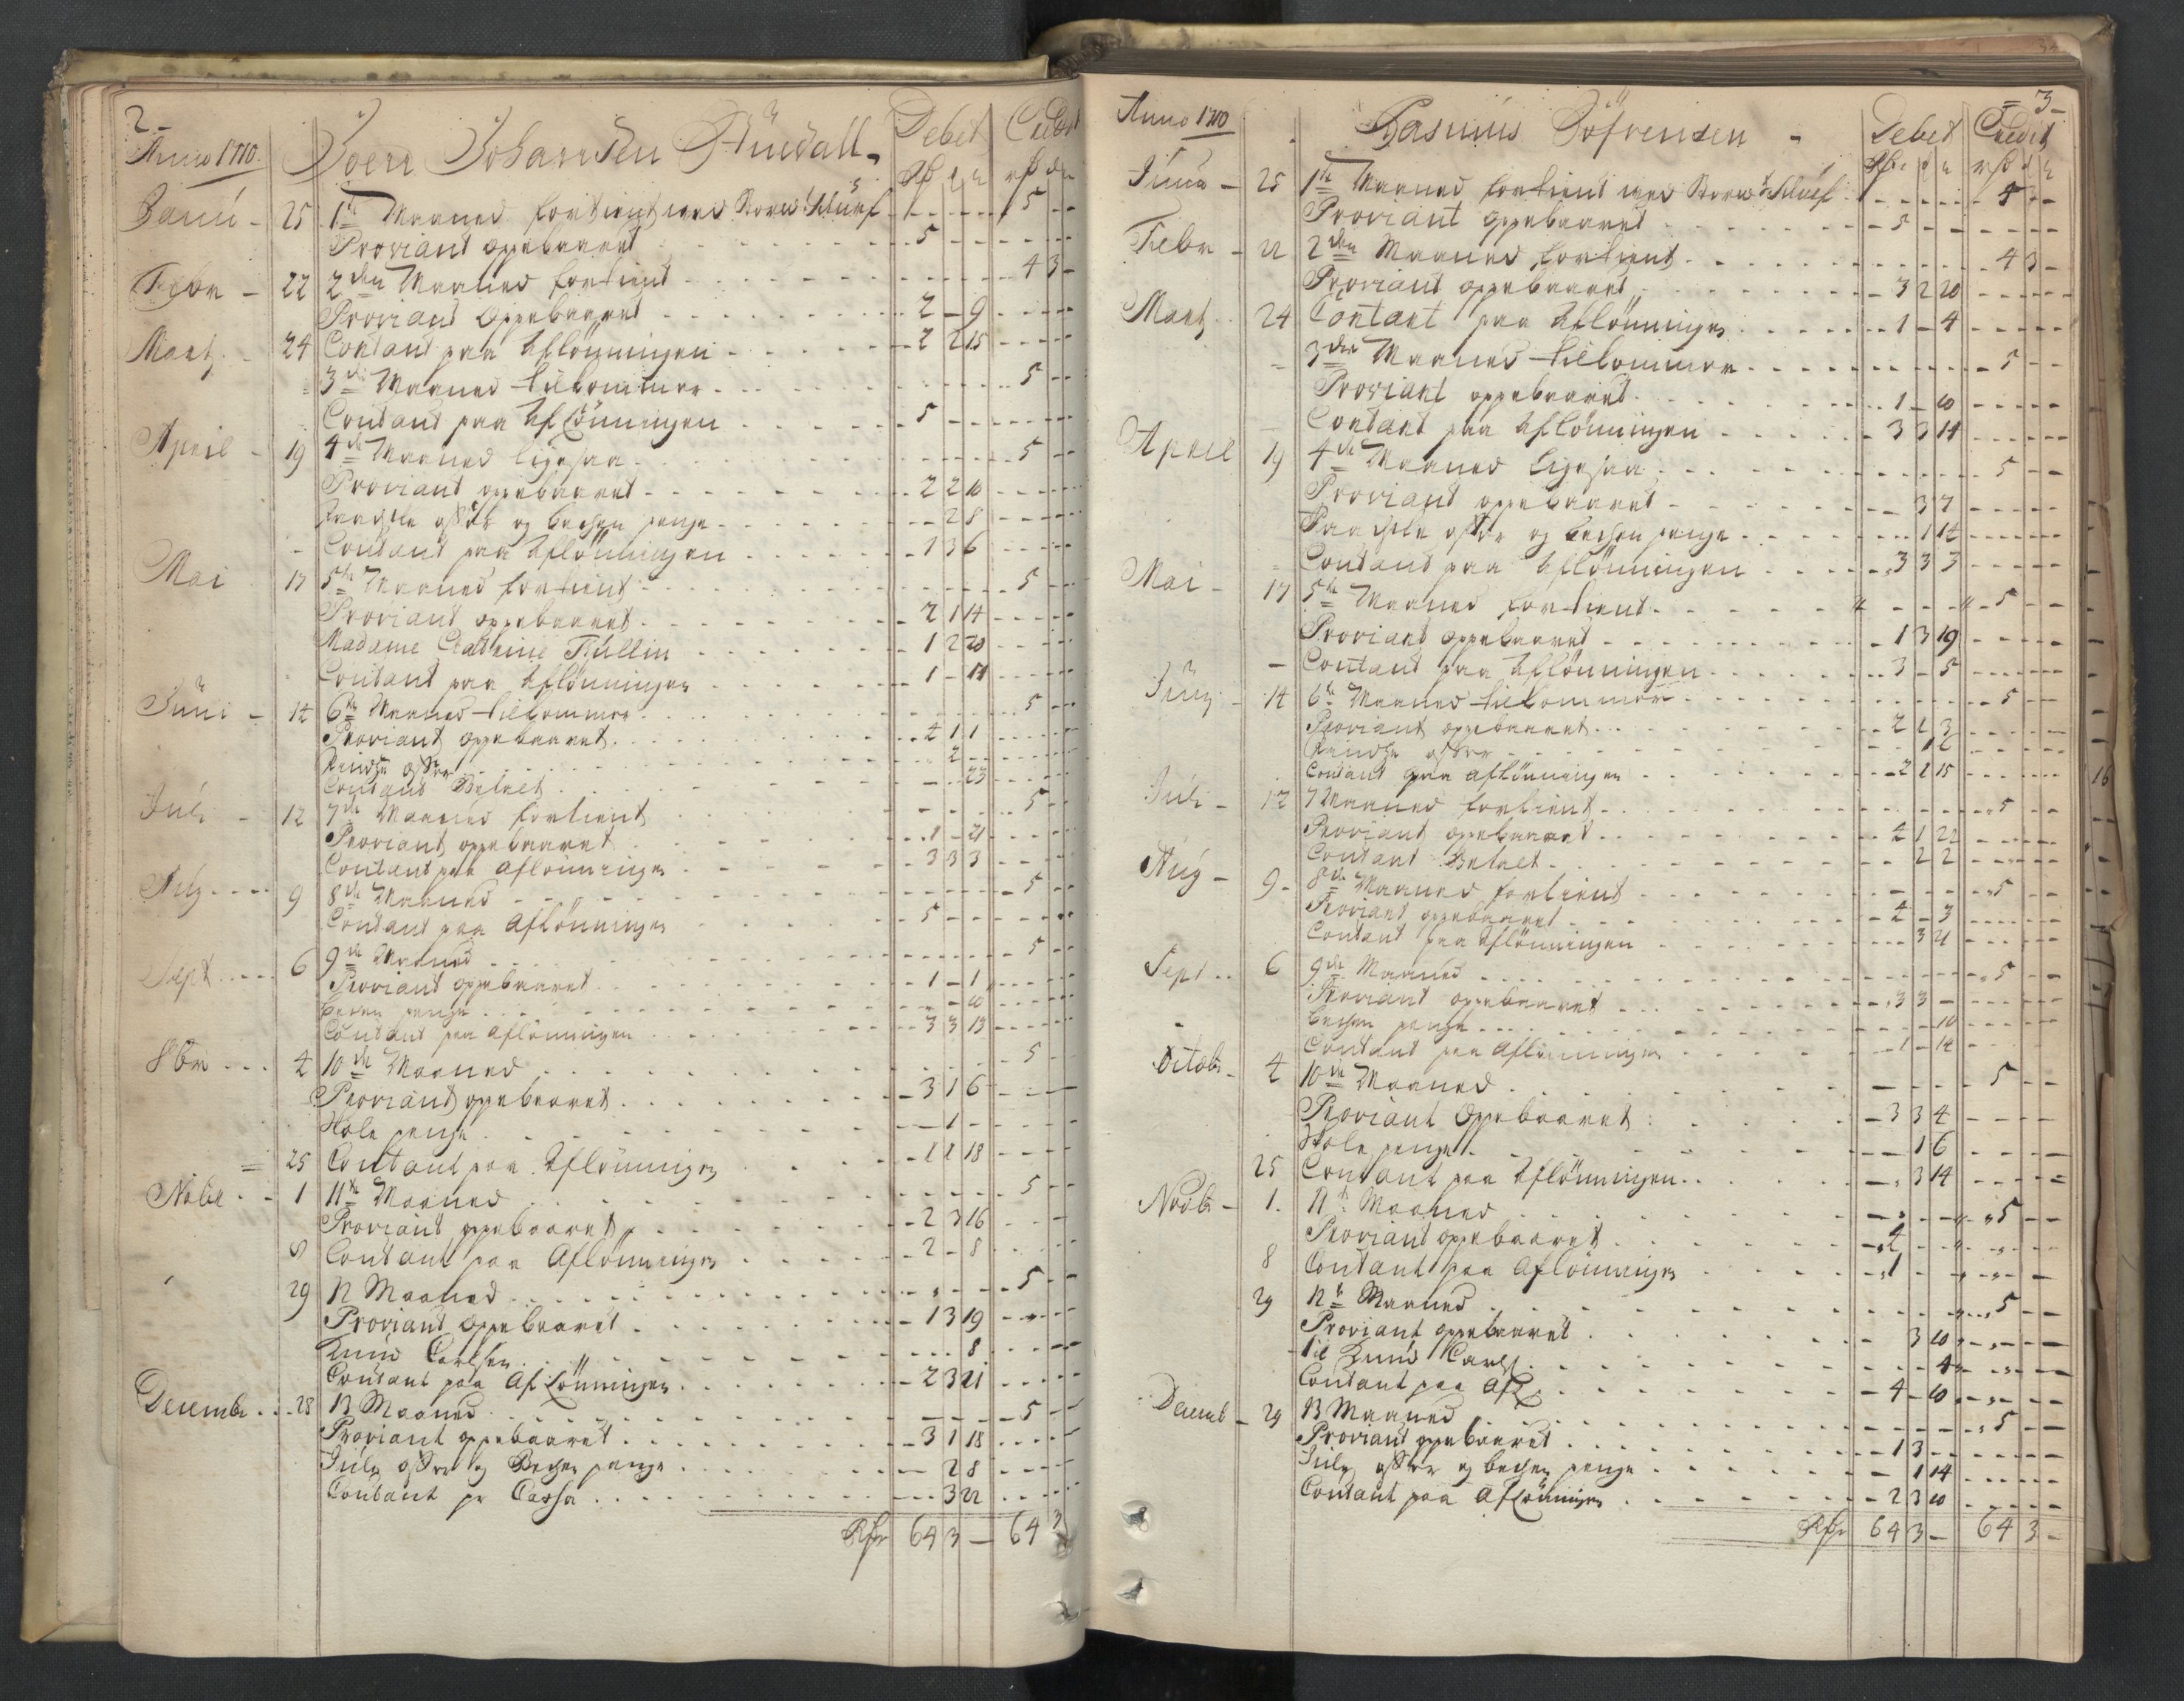 2-
Anno 1710. Joen Johansen Debet Credit
Janu - 25 1te Maaned fortient 5 - -
Proviant oppebaaret 5 - -
Febr - 22 2den Maaned fortient 4 3 -
Proviant oppebaaret 2 - 9
Mart. - 24 Contant paa Aflönningen 2 2 15
3die Maaned tilkommer 5 - -
Contant paa Aflönningen 5 - -
April - 19 4de Maaned ligesaa 5 - -
Proviant oppebaaret 2 2 10
Paaske offer og becken penge - 2 8
Contant paa Aflönningen 1 3 6
Mai 17 5te Maaned fortient 5 - -
Proviant oppebaaret 2 1 14
Madame Cathrine 1 2 20
Contant paa Aflönningen 1 -
Juni - 14 6te Maaned tilkommer 5 - -
Proviant oppebaaret 4 1 1
offer - 2 -
Contant Betalt - - 23
Juli - 12 7de Maaned fortient 5 - -
Proviant oppebaaret 1 - 21
Contant paa Aflönningen 3 3 3
Aug - 9 8de Maaned 5 - -
Contant paa Aflönningen 5 - -
Sept - 6 9de Maaned 5 - -
Proviant oppebaaret 1 - 1
becken penge - - 10
Contant paa Aflönningen 3 3 13
8br - 4 10de Maaned 5 - -
Proviant oppebaaret 3 1 6
penge - 1 -
= 25 Contant paa Aflönningen 1 1 18
1 11te Maaned 5 - -
Proviant oppebaaret 2 3 16
8 Contant paa Aflönningen 2 - 8
29 12 Maaned 5 - -
Proviant oppebaaret 1 3 19
Knud Carlsen - - 8
Contant paa Aflönningen 2 3 21
Decembr. 28 13 Maaned 5 - -
Proviant oppebaaret 3 1 18
Jule offer og Becken penge - 2 8
Contant pr Cassa - 3 22
64 3 - 64 3
- 3 -
Anno 1710 Rasmus Söfrensen - Debet Credit
25 1te Maaned fortient
Proviant oppebaaret 5 - -
Febr - 22 2den Maaned fortient 4 3 -
Proviant oppebaaret 3 2 20
Mart 24 Contant paa Aflönningen 1 - 4
3die Maaned tilkommer 5 - -
Proviant oppebaaret 1 - 10
Contant paa Aflönningen 3 3 14
April 19 4de Maaned ligesaa 5 - -
Proviant oppebaaret - 3 7
Paaske offer og becken penge - 1 14
Contant paa Aflönningen 3 3 3
Mai - 17 5te Maaned fortient 5 - -
Proviant oppebaaret 1 3 19
Contant paa Aflönningen 3 - 5
14 6te Maaned tilkommer 5 - -
Proviant oppebaaret 2 1 3
offer
Contant paa Aflönningen 2 1 15
Juli - 12 7 Maaned fortient 5 - -
Proviant oppebaaret 4 1 22
Contant Betalt - 2 2
Aug - 9 - 8de Maaned fortient 5 - -
Proviant oppebaaret 4 - 3
Contant paa Aflönningen - 3 21
Sept 6 9de Maaned 5 - -
Proviant oppebaaret 3 3 -
becken penge - - 10
Contant paa Aflönningen 1 - 14
Octobr - 4 10de Maaned 5 - -
Proviant Oppebaaret 3 3 4
penge - 1 6
25 Contant paa Aflönningen - 3 14
Novbr - 1. 11te Maaned 5 - -
Proviant oppebaaret 4 - -
8 Contant paa Aflönningen 1 - -
29 12te Maaned 5 - -
Proviant oppebaaret - 3 10
til Knud Carls. - - 4
Contant paa Afl. 4 - 10
Decemb - 29 13 Maaned 5 - -
Proviant oppebaaret 1 3 -
Jule offer og becken penge - 1 14
Contant paa Aflönningen 2 3 10
64 3 - 64 3 -
16